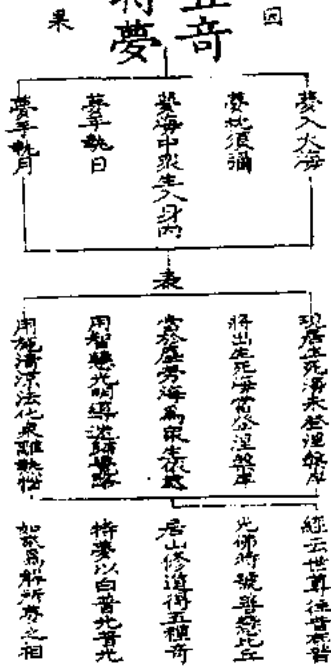 因
五奇
特夢
果
夢入大海
夢枕須彌
夢海中眾生入身內
夢手執日
夢手執月
表
現居生死海未登涅槃岸
將出生死海當登涅槃岸
當於塵勞海為眾生依處
用智慧光明導迷歸覺路
用純清涼法化衆離熱惱
經云世尊往昔在普
光佛時號善慧比丘
居山修道得五種奇
特夢以白普光普光
如為解所夢之相